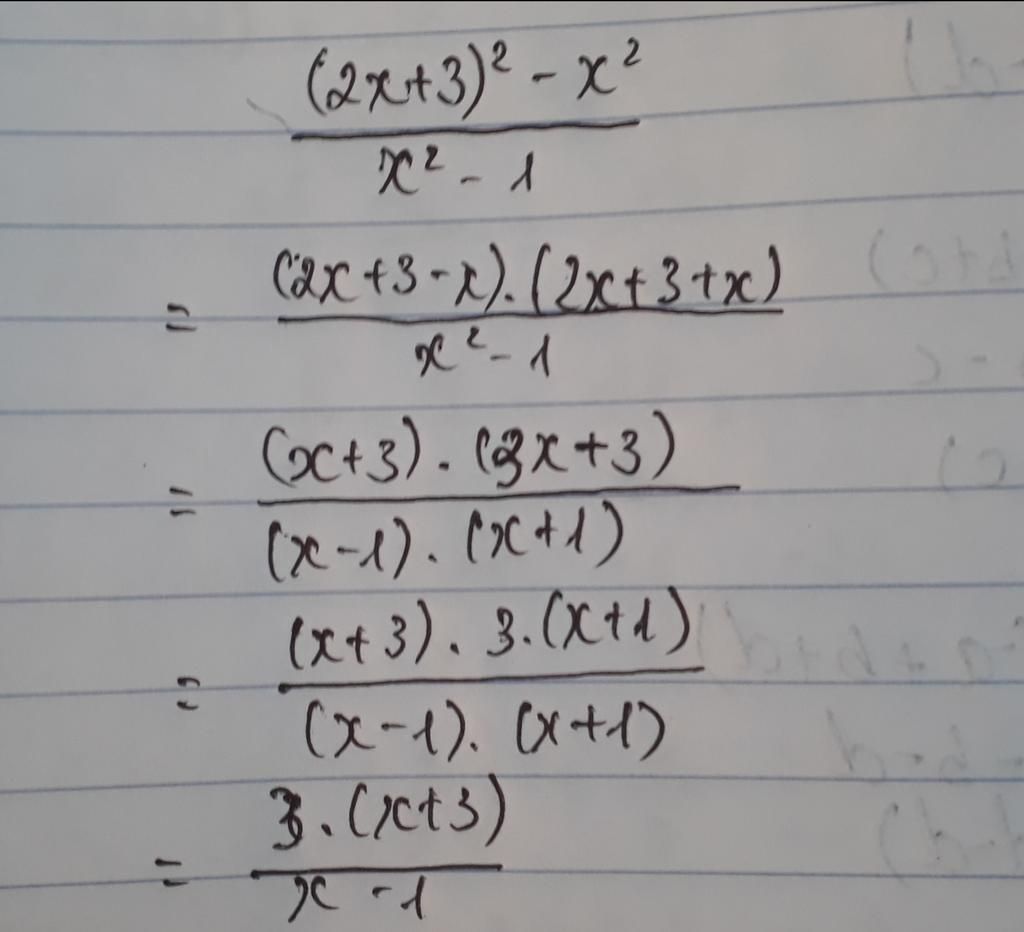 (2x+3)² - x²
x² - 1
= (2x+3-x).(2x+3+x)
x² - 1
= (x+3).(3x+3)
(x-1).(x+1)
= (x+3).3.(x+1)
(x-1).(x+1)
= 3.(x+3)
x - 1